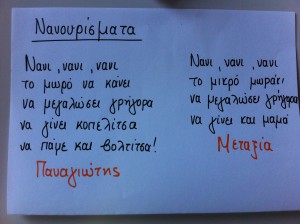 Νανουρίσματα
Νανι, νανι, νανι
το μωρό να κάνει
να μεγαλώσει γρήγορα
να γίνει κοπελίτσα
να πάμε και βολτίτσα!
Παναγιώτης
Νανι, νανι, νανι
το μικρό μωράκι
να μεγαλώσει γρήγορα
να γίνει και μαμά
Μεταξία